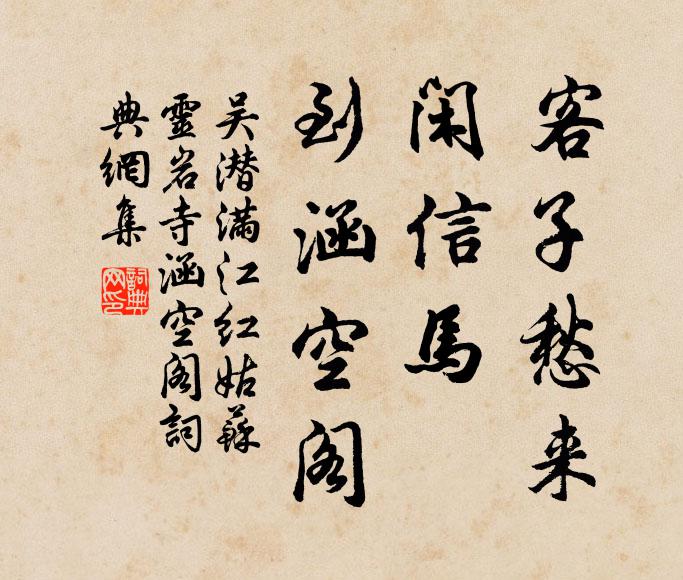 客子愁来
闲信馬
到涵空阁
吴潜满江红姑蘇
靈岩寺涵空阁詞
典網集
詞典网印